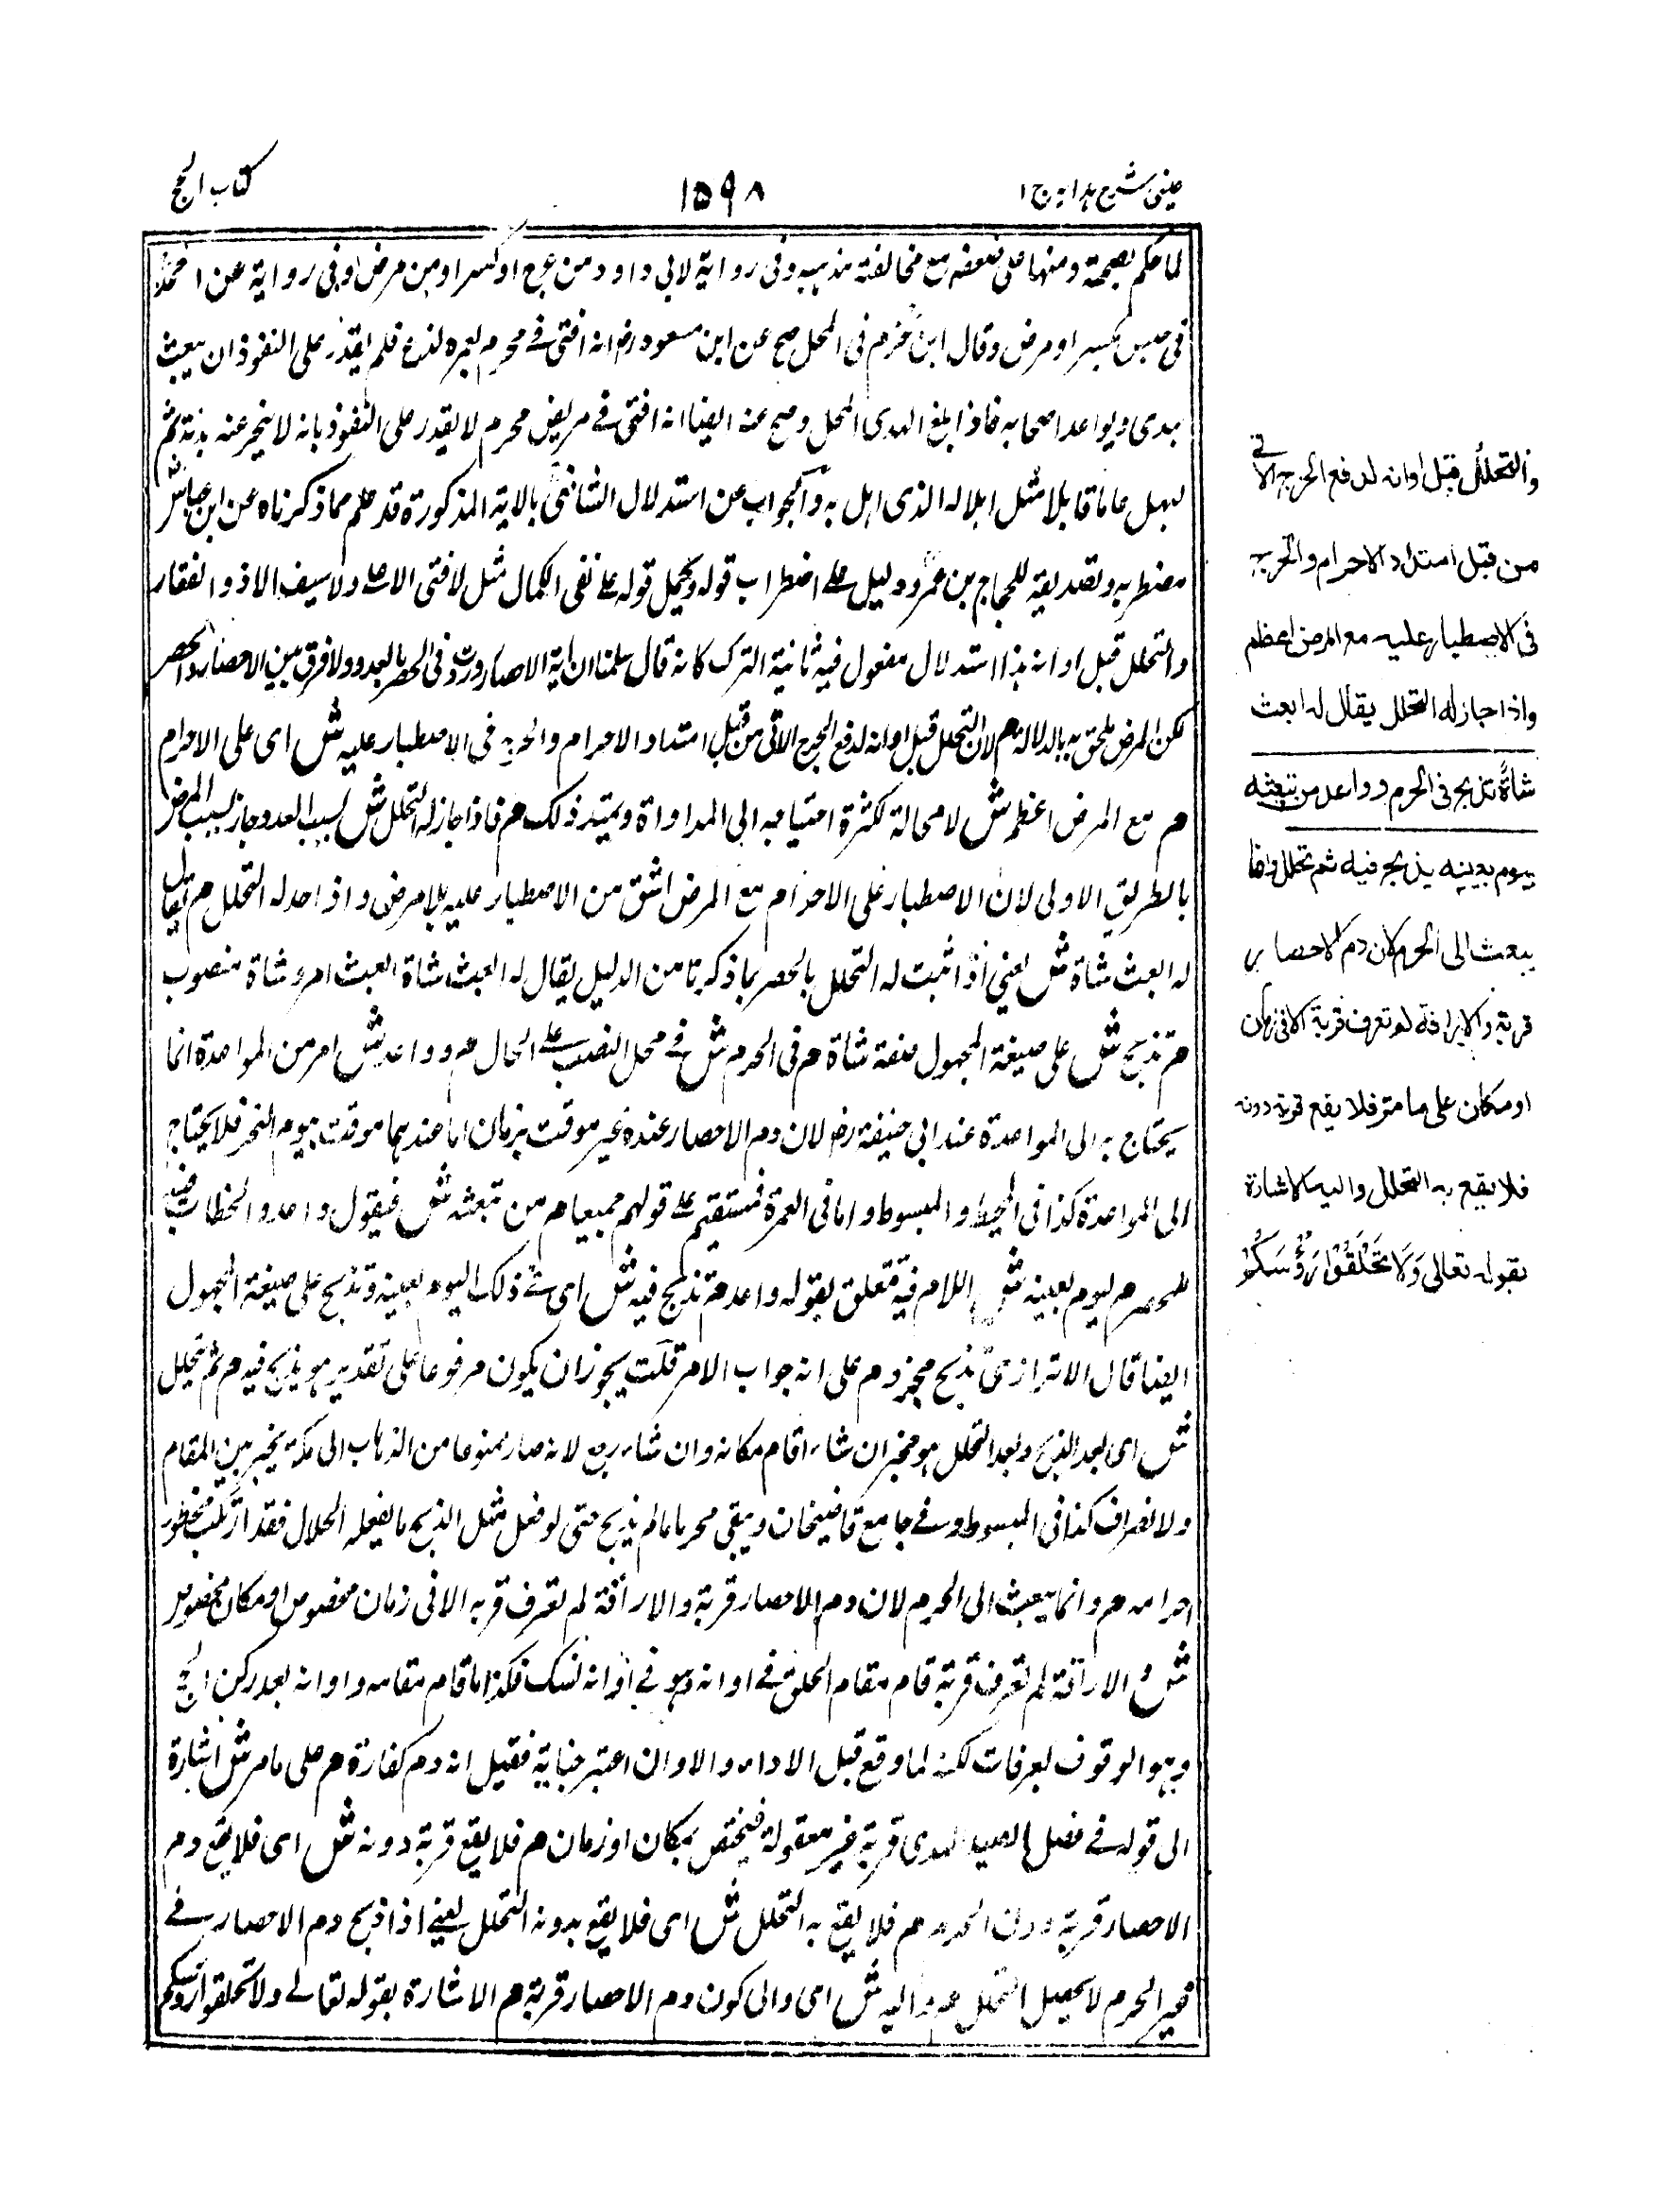 عینی شرح ہدایہ ج ۱
۱۵۹۸
کتاب الحج
لما حکم بصحته ومنها علی ضعفه مع مخالفته مذہبه وفی روایة لابی داود من عرج او کسر او من مرض وفی روایة عن احمد
فی حبس بکسر او مرض وقال ابن حزم فی المحلی صح عن ابن مسعود رضہ انه افتی فی محرم بعمرة لدغ فلم یقدر علی النفوذ ان یبعث
بہدی ویواعد اصحابه فاذا بلغ الہدی المحل وصح عنه ایضا انه افتی فی مریض محرم لا یقدر علی النفوذ بانه لا ینحر عنه بدنة ثم
لیہل عاما قابلا مثل اہلاله الذی اہل به والجواب عن استدلال الشافعی بالایة المذکورة قد علم مما ذکرناه عن ابن عباس
مضطربه وتصدیقه للحجاج بن عمرو دلیل علی اضطراب قوله ویحمل قوله علی نفی الکمال مثل لا فتی الا علی ولا سیف الا ذو الفقار
والتحلل قبل اوانه ہذا استدلال معقول فیه ثانیة الترک کانه قال سلمنا ان آیة الاحصار وردت فی الحصر بالعدو ولا فرق بین الاحصار والحصر
لکن المرض ملحق به بالدلالة ھم لان التحلل قبل اوانه لدفع الحرج الاتی من قبل امتداد الاحرام والحرج فی الاصطبار علیه ش ای علی الاحرام
ھم مع المرض اعظم ش لا محالة لکثرة احتیاجه الی المداواة ویمتد ذلک ھم فاذا جاز له التحلل ش بسبب العدو جاز بسبب المرض
بالطریق الاولی لان الاصطبار علی الاحرام مع المرض اشق من الاصطبار علیه بلا مرض واذا حد له التحلل ھم یقال
له ابعث شاة ش یعنی اذا ثبت له التحلل بالحصر بما ذکرنا من الدلیل یقال له ابعث شاة ابعث امر وشاة منصوب
ھم تذبح ش علی صیغة المجہول صفة شاة ھم فی الحرم ش فی محل النصب علی الحال ھم وواعد ش امر من المواعدة انما
یحتاج به الی المواعدة عند ابی حنیفة رضہ لان دم الاحصار عنده غیر موقت بزمان اما عندہما موقت بیوم النحر فلا یحتاج
الی المواعدة کذا فی المحیط والمبسوط واما فی العمرة فمستقیم علی قولہم جمیعا ھم من تبعثه ش فیقول واعد والخطاب فیه
للمحصر ھم لیوم بعینه ش اللام فیه متعلق بقوله واعد ھم تذبح فیه ش ای فی ذلک الیوم بعینه وتذبح علی صیغة المجہول
ایضا قال الاترازی یذبح مجزوم علی انه جواب الامر قلت یجوز ان یکون مرفوعا علی تقدیر ہو یذبح فیه ھم ثم تحلل
ش ای بعد الذبح وبعد التحلل ہو مخیر ان شاء اقام مکانه وان شاء رجع لانه صار ممنوعا من الذہاب الی مکة یخیر بین المقام
ولانصراف کذا فی المبسوط وفی جامع قاضیخان ویبقی محرما ما لم یذبح حتی لو فعل مثل الذبح ما یفعله الحلال فقد ارتکب محظور
احرامه ھم وانما یبعث الی الحرم لان دم الاحصار قربة والاراقة لم تعرف قربة الا فی زمان مخصوص او مکان مخصوص
ش والاراقة لم تعرف قربة قام مقام الحلق فی اوانه وہو فی اوانه نسک فکذا ما قام مقامه واوانه بعد رکن الحج
وہو الوقوف بعرفات لکنه لما وقع قبل الاداء والاوان اعتبر جنایة فقیل انه دم کفارة ھم علی ما مر ش اشارة
الی قوله فی فصل الصید الہدی قربة غیر معقولة فیختص بمکان او زمان ھم فلا یقع قربة دونه ش ای فلا یقع دم
الاحصار قربة دون الحرم ھم فلا یقع به التحلل ش ای فلا یقع بدونه التحلل یعنی اذا ذبح دم الاحصار فی
غیر الحرم لا یحصل التحلل ھم والیه ش ای والی کون دم الاحصار قربة ھم الاشارة بقوله تعالی ولا تحلقوا رؤسکم
والتحلل قبل اوانه لدفع الحرج الاتی
من قبل امتداد الاحرام والحرج
فی الاصطبار علیه مع المرض اعظم
واذا جاز له التحلل یقال له ابعث
شاةً تذبح فی الحرم وواعد من تبعثه
بیوم بعینه یذبح فیه ثم تحلل وانما
یبعث الی الحرم لان دم الاحصار
قربة والاراقة لم تعرف قربة الا فی زمان
او مکان علی ما مر فلا یقع قربة دونه
فلا یقع به التحلل والیه الاشارة
بقوله تعالی وَلَا تَحْلِقُوْا رُؤُسَکُمْ